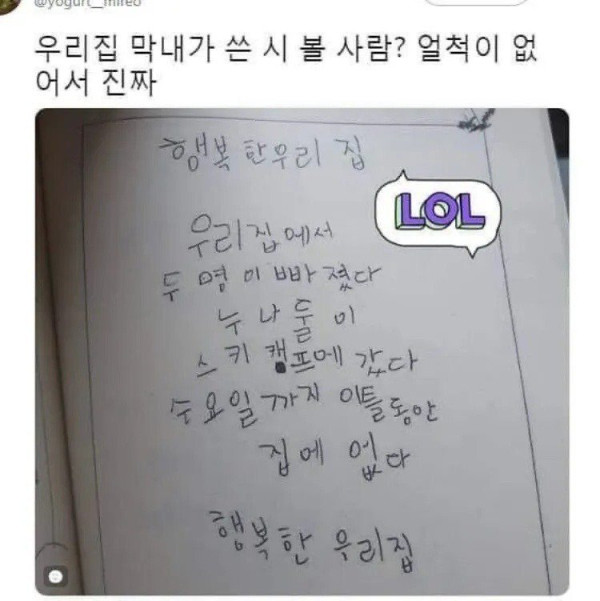 @yogurt__mireo
우리집 막내가 쓴 시 볼 사람? 얼척이 없
어서 진짜
행복한우리 집
LOL
우리집에서
두 명이 빠졌다
누나둘이
스키 캠프에 갔다
수요일까지 이틀동안
집에 없다
행복한 우리집